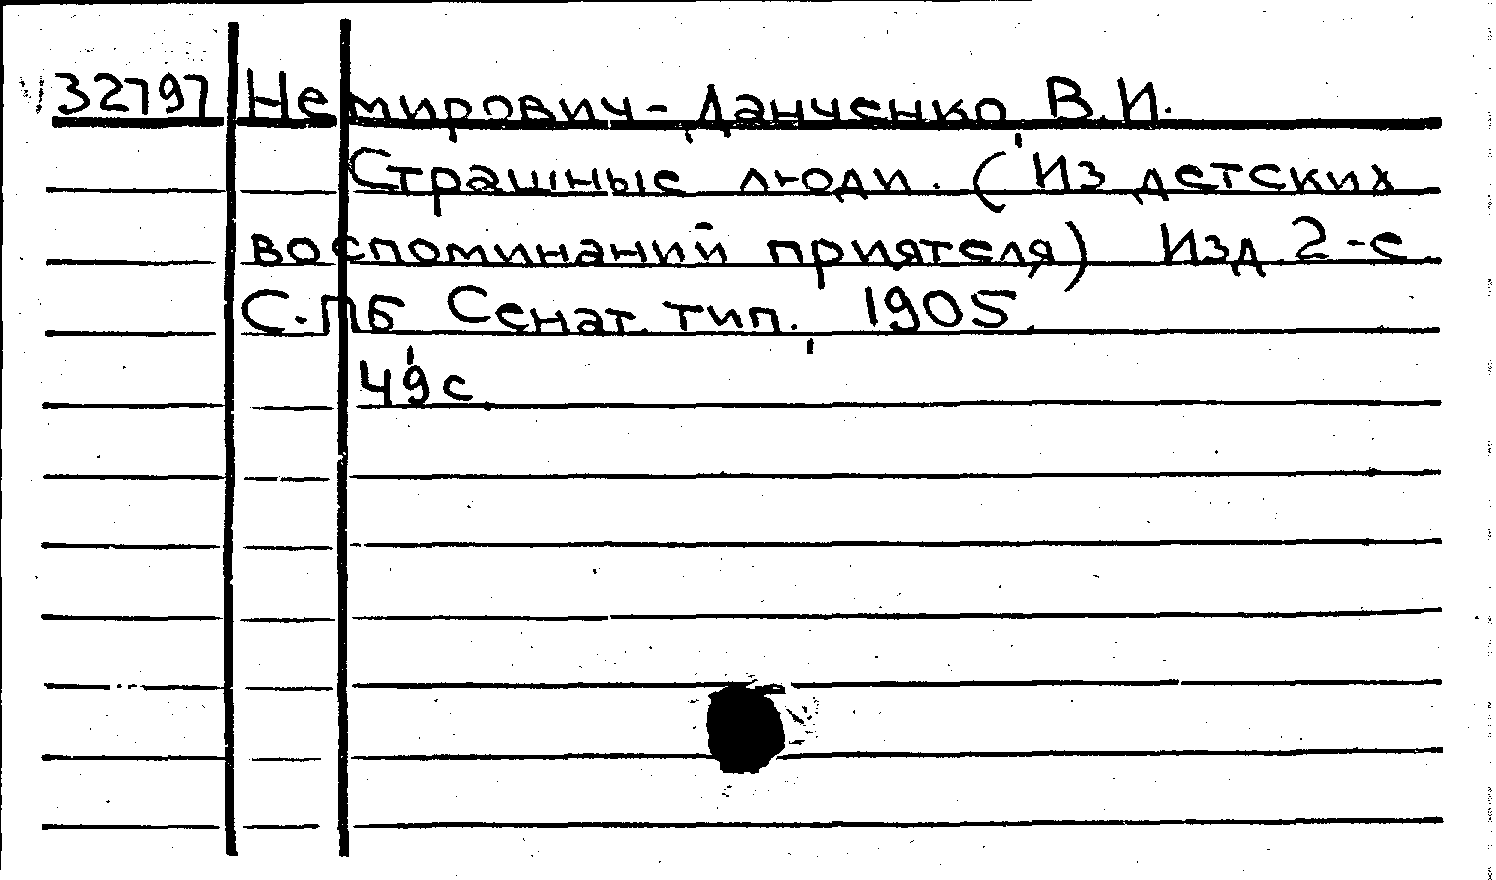 32797 Немирович-Данченко В.И.
Страшные люди. (Из детских
воспоминаний приятеля) Изд. 2-е.
С.-Пб Сенат. тип. 1905.
49 с.